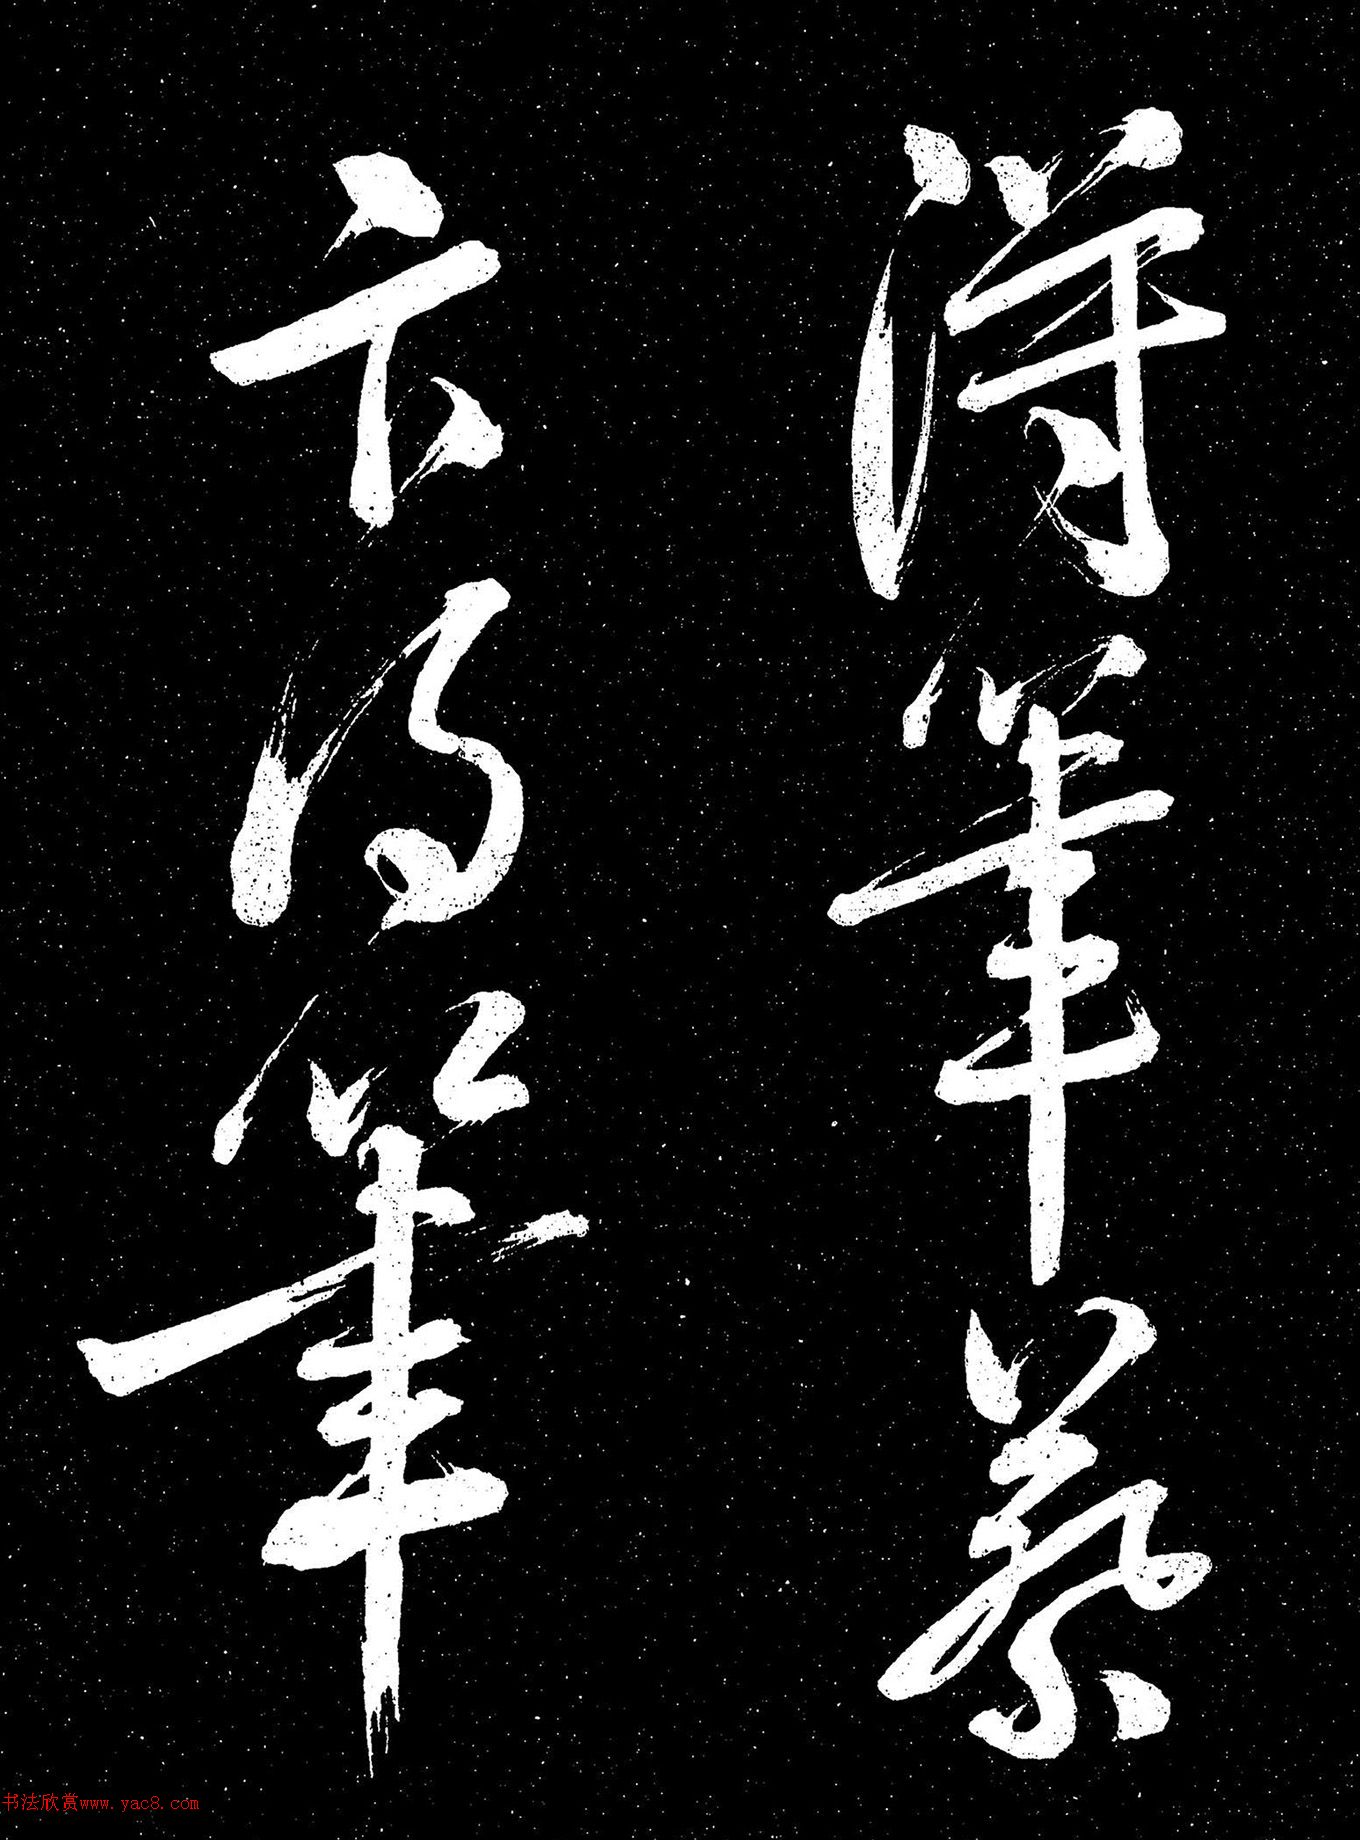 得筆蔡
卞得筆
书法欣赏www.yac8.com